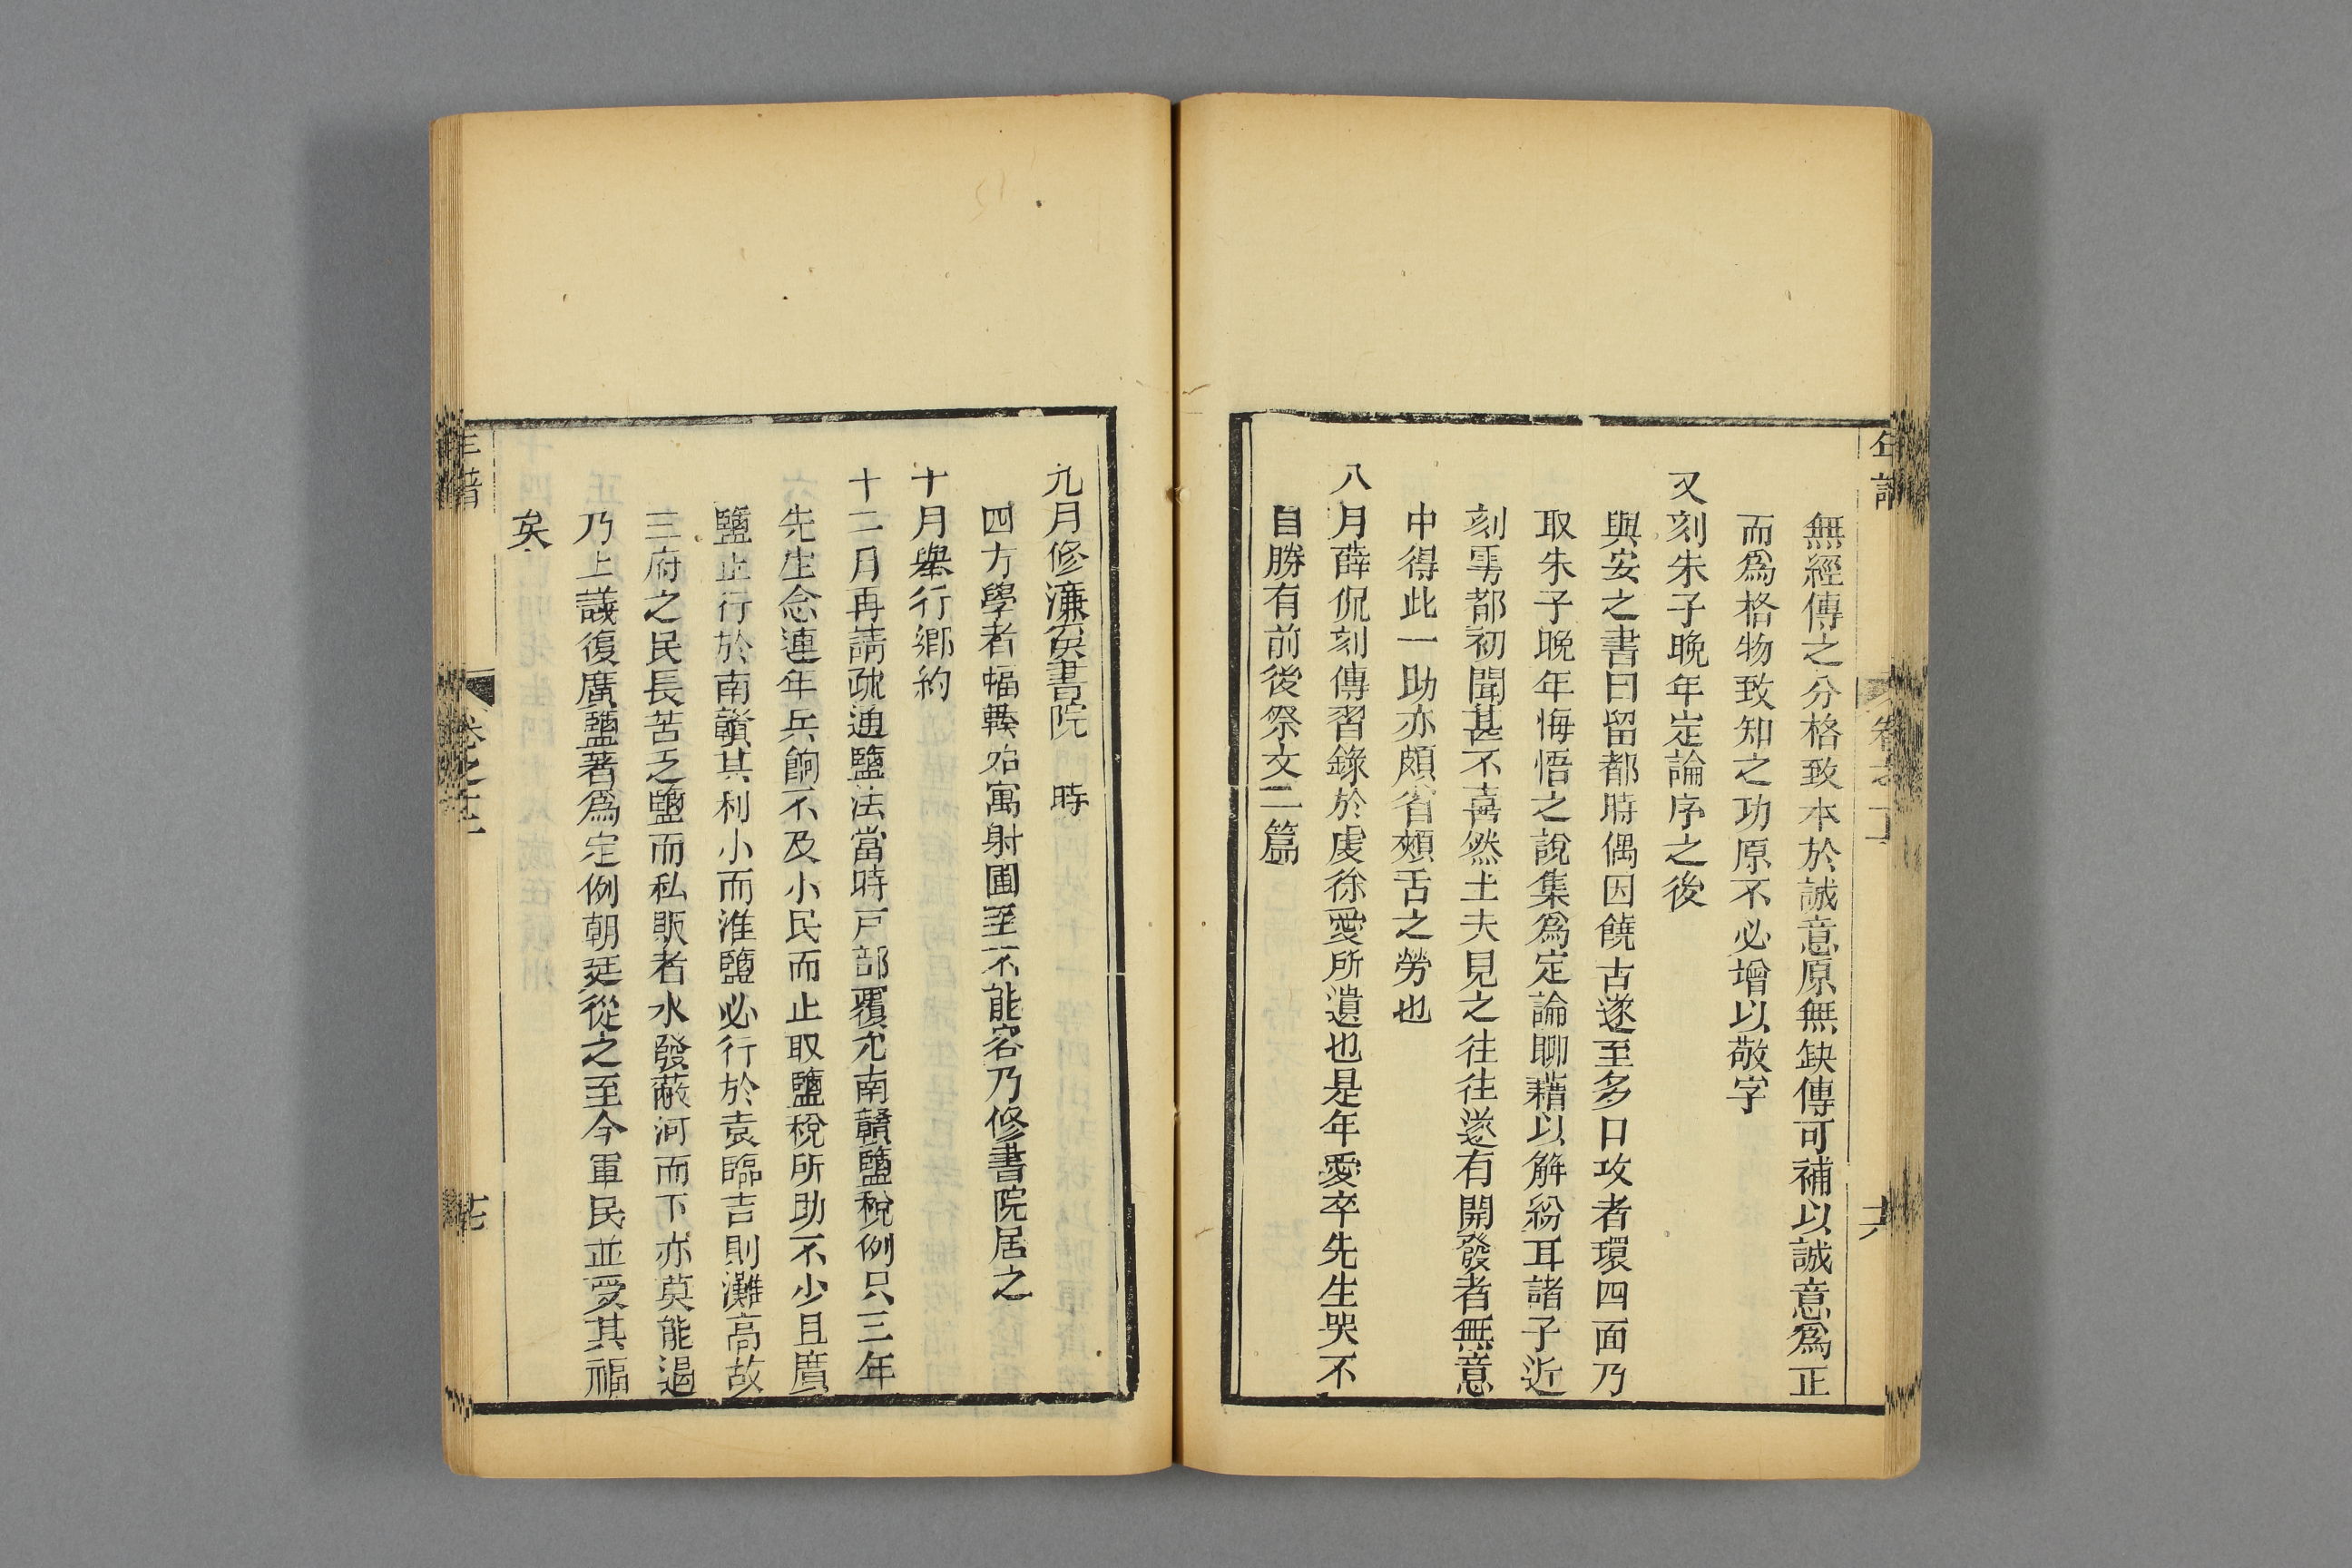 無經傳之分格致本於誠意原無缺傳可補以誠意爲正
而爲格物致知之功原不必增以敬字
又刻朱子晚年定論序之後
與安之書曰留都時偶因饒古遂至多口攻者環四面乃
取朱子晚年悔悟之說集爲定論聊藉以解紛耳諸子近
刻雩都初聞甚不喜然士夫見之往往遂有開發者無意
中得此一助亦頗省頰舌之勞也
八月薛侃刻傳習錄於虔徐愛所遺也是年愛卒先生哭不
自勝有前後祭文二篇
九月修濂溪書院 時
四方學者輻輳始寓射圃至不能容乃修書院居之
十月舉行鄉約
十二月再請疏通鹽法當時戸部覆允南贛鹽稅例只三年
先生念連年兵餉不及小民而止取鹽稅所助不少且廣
鹽止行於南贛其利小而淮鹽必行於袁臨吉則灘高故
三府之民長苦乏鹽而私販者水發蔽河而下亦莫能遏
乃上議復廣鹽著爲定例朝廷從之至今軍民並受其福
矣
年譜 卷之